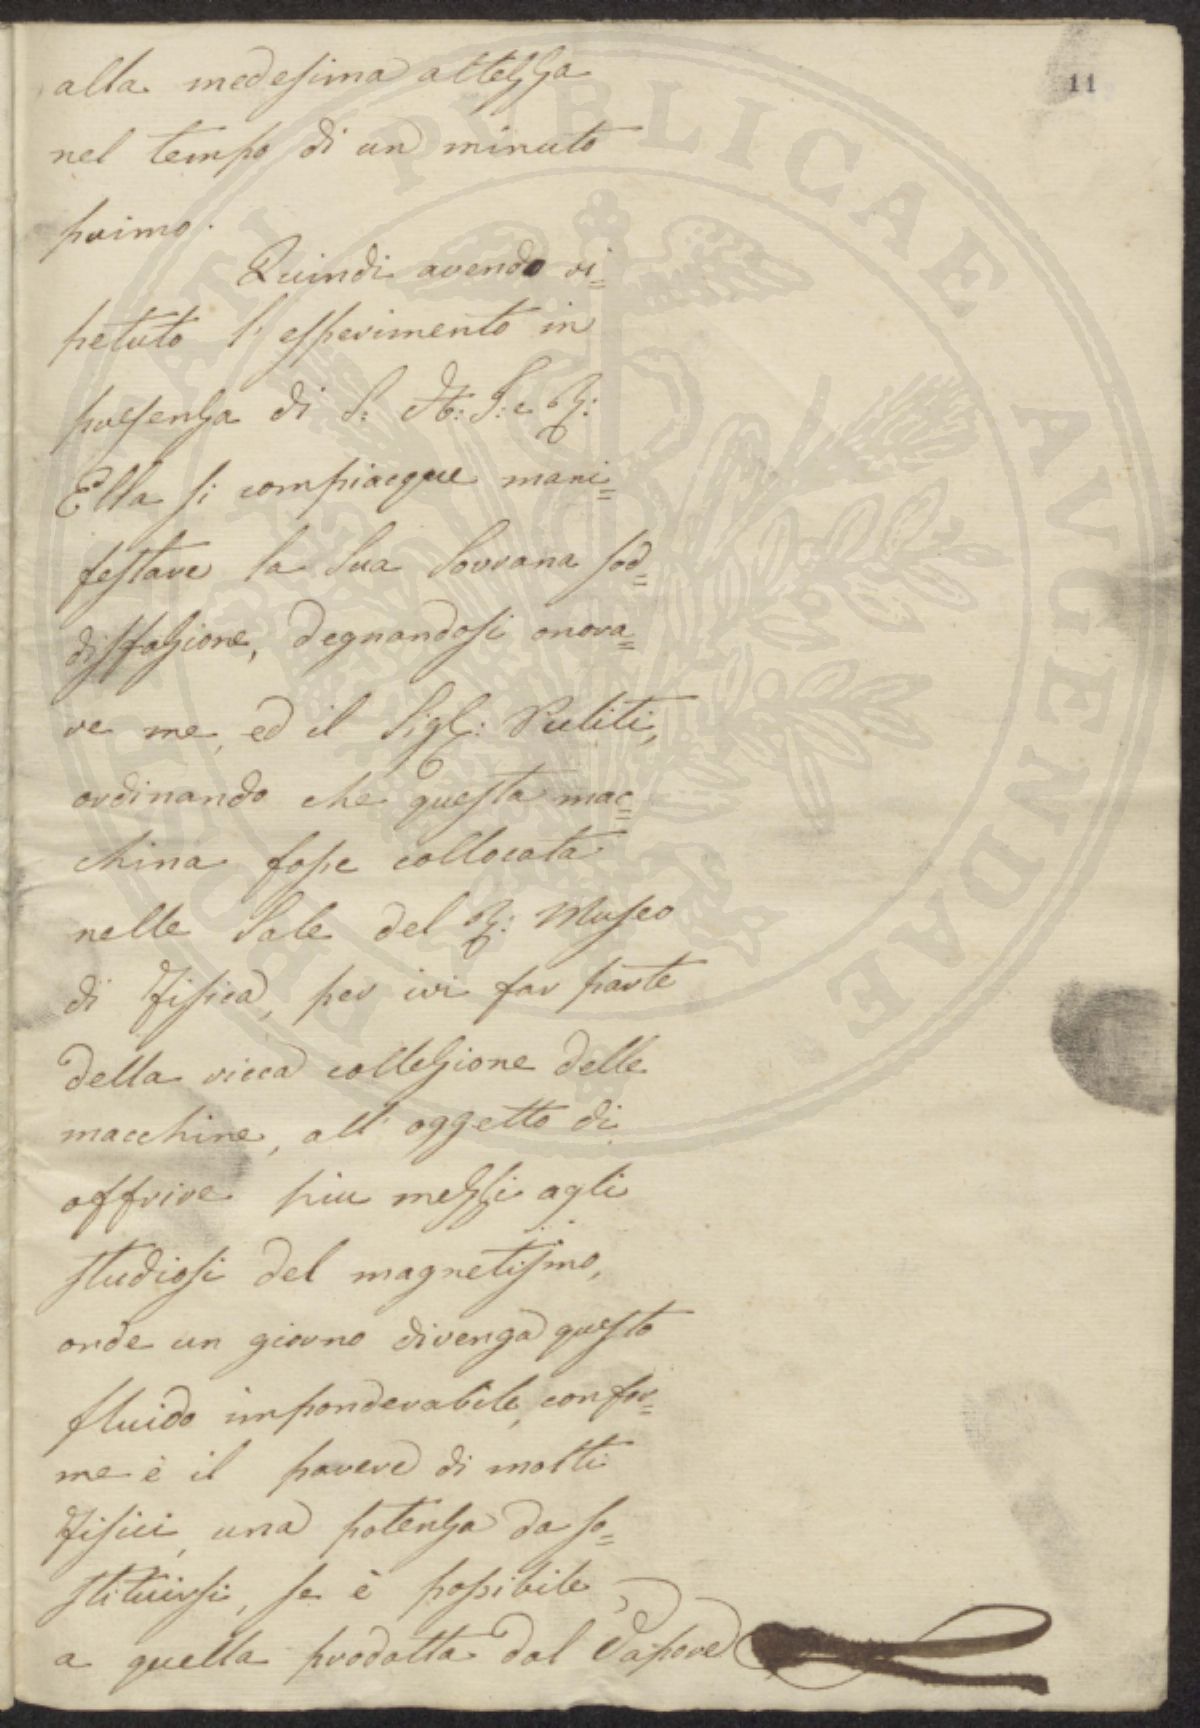 11
alla medesima altezza
nel tempo di un minuto
primo.
Quindi avendo ri=
petuto l'esperimento in
presenza di S: A: I: e R:
Ella si compiacque mani=
festare la Sua Sovrana sod=
disfazione, degnandosi onora=
re me, ed il Sigr: Puliti,
ordinando che questa mac=
china fosse collocata
nelle Sale del R: Museo
di Fisica, per ivi far parte
della ricca collezione delle
macchine, all'oggetto di
offrire piu mezzi agli
studiosi del magnetismo,
onde un giorno divenga questo
fluido imponderabile, confor=
me è il parere di molti
Fisici, una potenza da so=
stituirsi, se è possibile,
a quella prodotta dal Vapore
PVBLICAE AVGENDAE